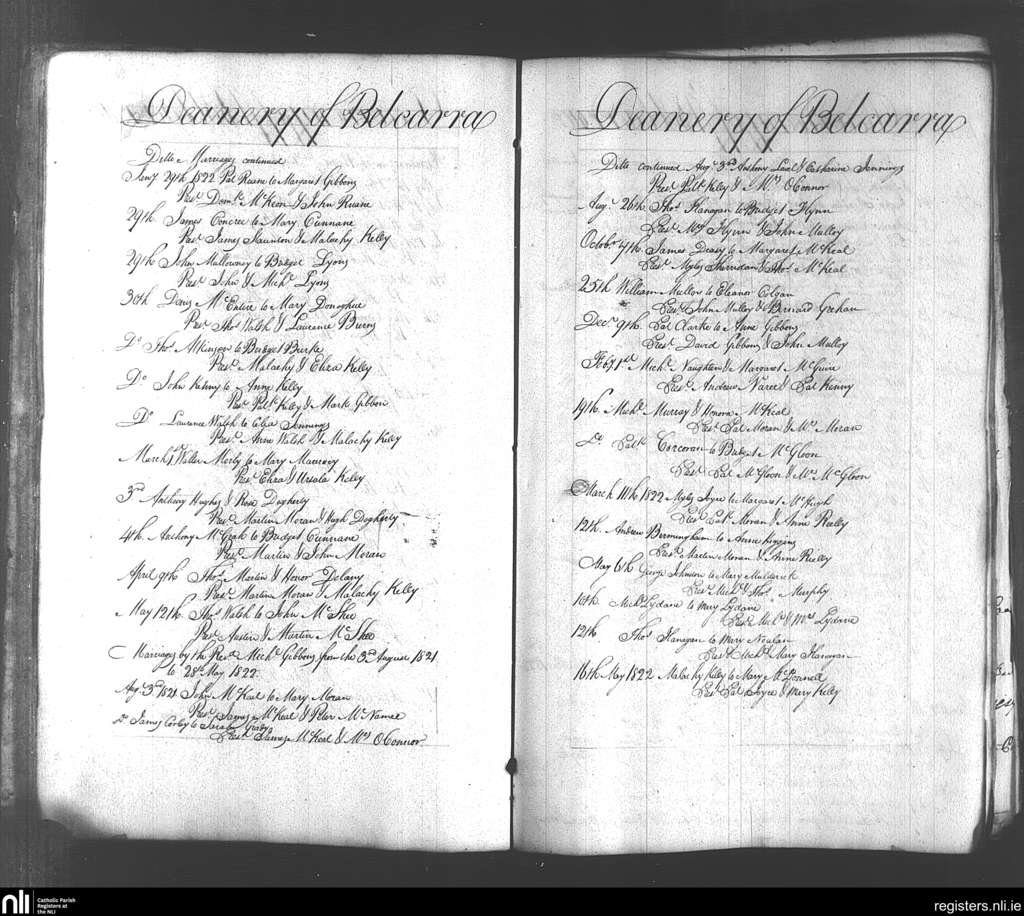 Deanery of Belcarra
Ditto Marriages continued
Jany 29th 1822 Pat Ruane to Margaret Gibbons
Prest Domk McKeon & John Ruane
29th James Concree to Mary Cunnane
Prest James Staunton & Malachy Kelly
29th John Mullowney to Bridget Lyons
Prest John & Michl Lyons
30th Denis McEntire to Mary Donoghue
Prest Thos Walsh & Laurence Burns
Do Thos Atkinson to Bridget Burke
Prest Malachy & Eliza Kelly
Do John Kenny to Anne Kelly
Prest Patk Kelly & Mark Gibbon
Do Laurence Walsh to Celia Jennings
Prest Anne Walsh & Malachy Kelly
March 1st Walter Merly to Mary
Prest Eliza & Ursula Kelly
3rd Anthony Hughes & Rose Dogherty
Prest Martin Moran & Hugh Dogherty
4th Anthony McGrah to Bridget Cunnane
Prest Martin & John Moran
April 9th Thos Martin & Honor Delany
Prest Martin Moran & Malachy Kelly
May 12th Thos Walsh to John McShee
Prest Austin & Martin McShee
Marriages by the Revd Michl Gibbons from the 3rd August 1821
to 28th May 1822
Augt 3rd 1821 John McKeal to Mary Moran
Prest James McKeal & Peter McNamee
Do James Corby to Sarah
Prest James McKeal & Mrs OConnor
Deanery of Belcarra
Ditto continued Augt 3rd Anthony & Catharine Jennings
Prest Patk Kelly & Mrs OConnor
Augt 26th Thos Flanagan to Bridget Flynn
Prest Mrs Flynn & John Mulloy
Octobr 7th James Deasy to Margaret McKeal
Prest Myles Sherridan & Thos McKeal
25th William Mullow to Eleanor Colgan
Prest John Mulloy & Bernard Grehan
Decr 9th Pat Clarke to Anne Gibbons
Prest David Gibbons & John Mulloy
Feby 1st Michl Naughten & Margaret McGuire
Prest Andrew Naree & Pat Kenny
19th Michl Murray & Honora McKeal
Prest Pat Moran & Mrs Moran
Do Patk Corcoran to Bridget McGloon
Prest Pat McGloon & Mrs McGloon
March 11th 1822 Myles Joyce to Margaret McHugh
Prest Patk Moran & Anne Reilly
12th Andrew Birmingham to Anne
Prest Martin Moran & Anne Reilly
May 6th George Johnston to Mary Mulderick
Prest Michl & Thos Murphy
10th Michl Lydane to Mary Lydane
Prest Michl & Mrs Lydane
12th Thos Flanagan to Mary Nealan
Prest Michl Mary Flanagan
16th May 1822 Malachy Kelly to Mary McDonnell
Prest Pat Joyce & Mary Kelly
nli
Catholic Parish
Registers at
the NLI
registers.nli.ie